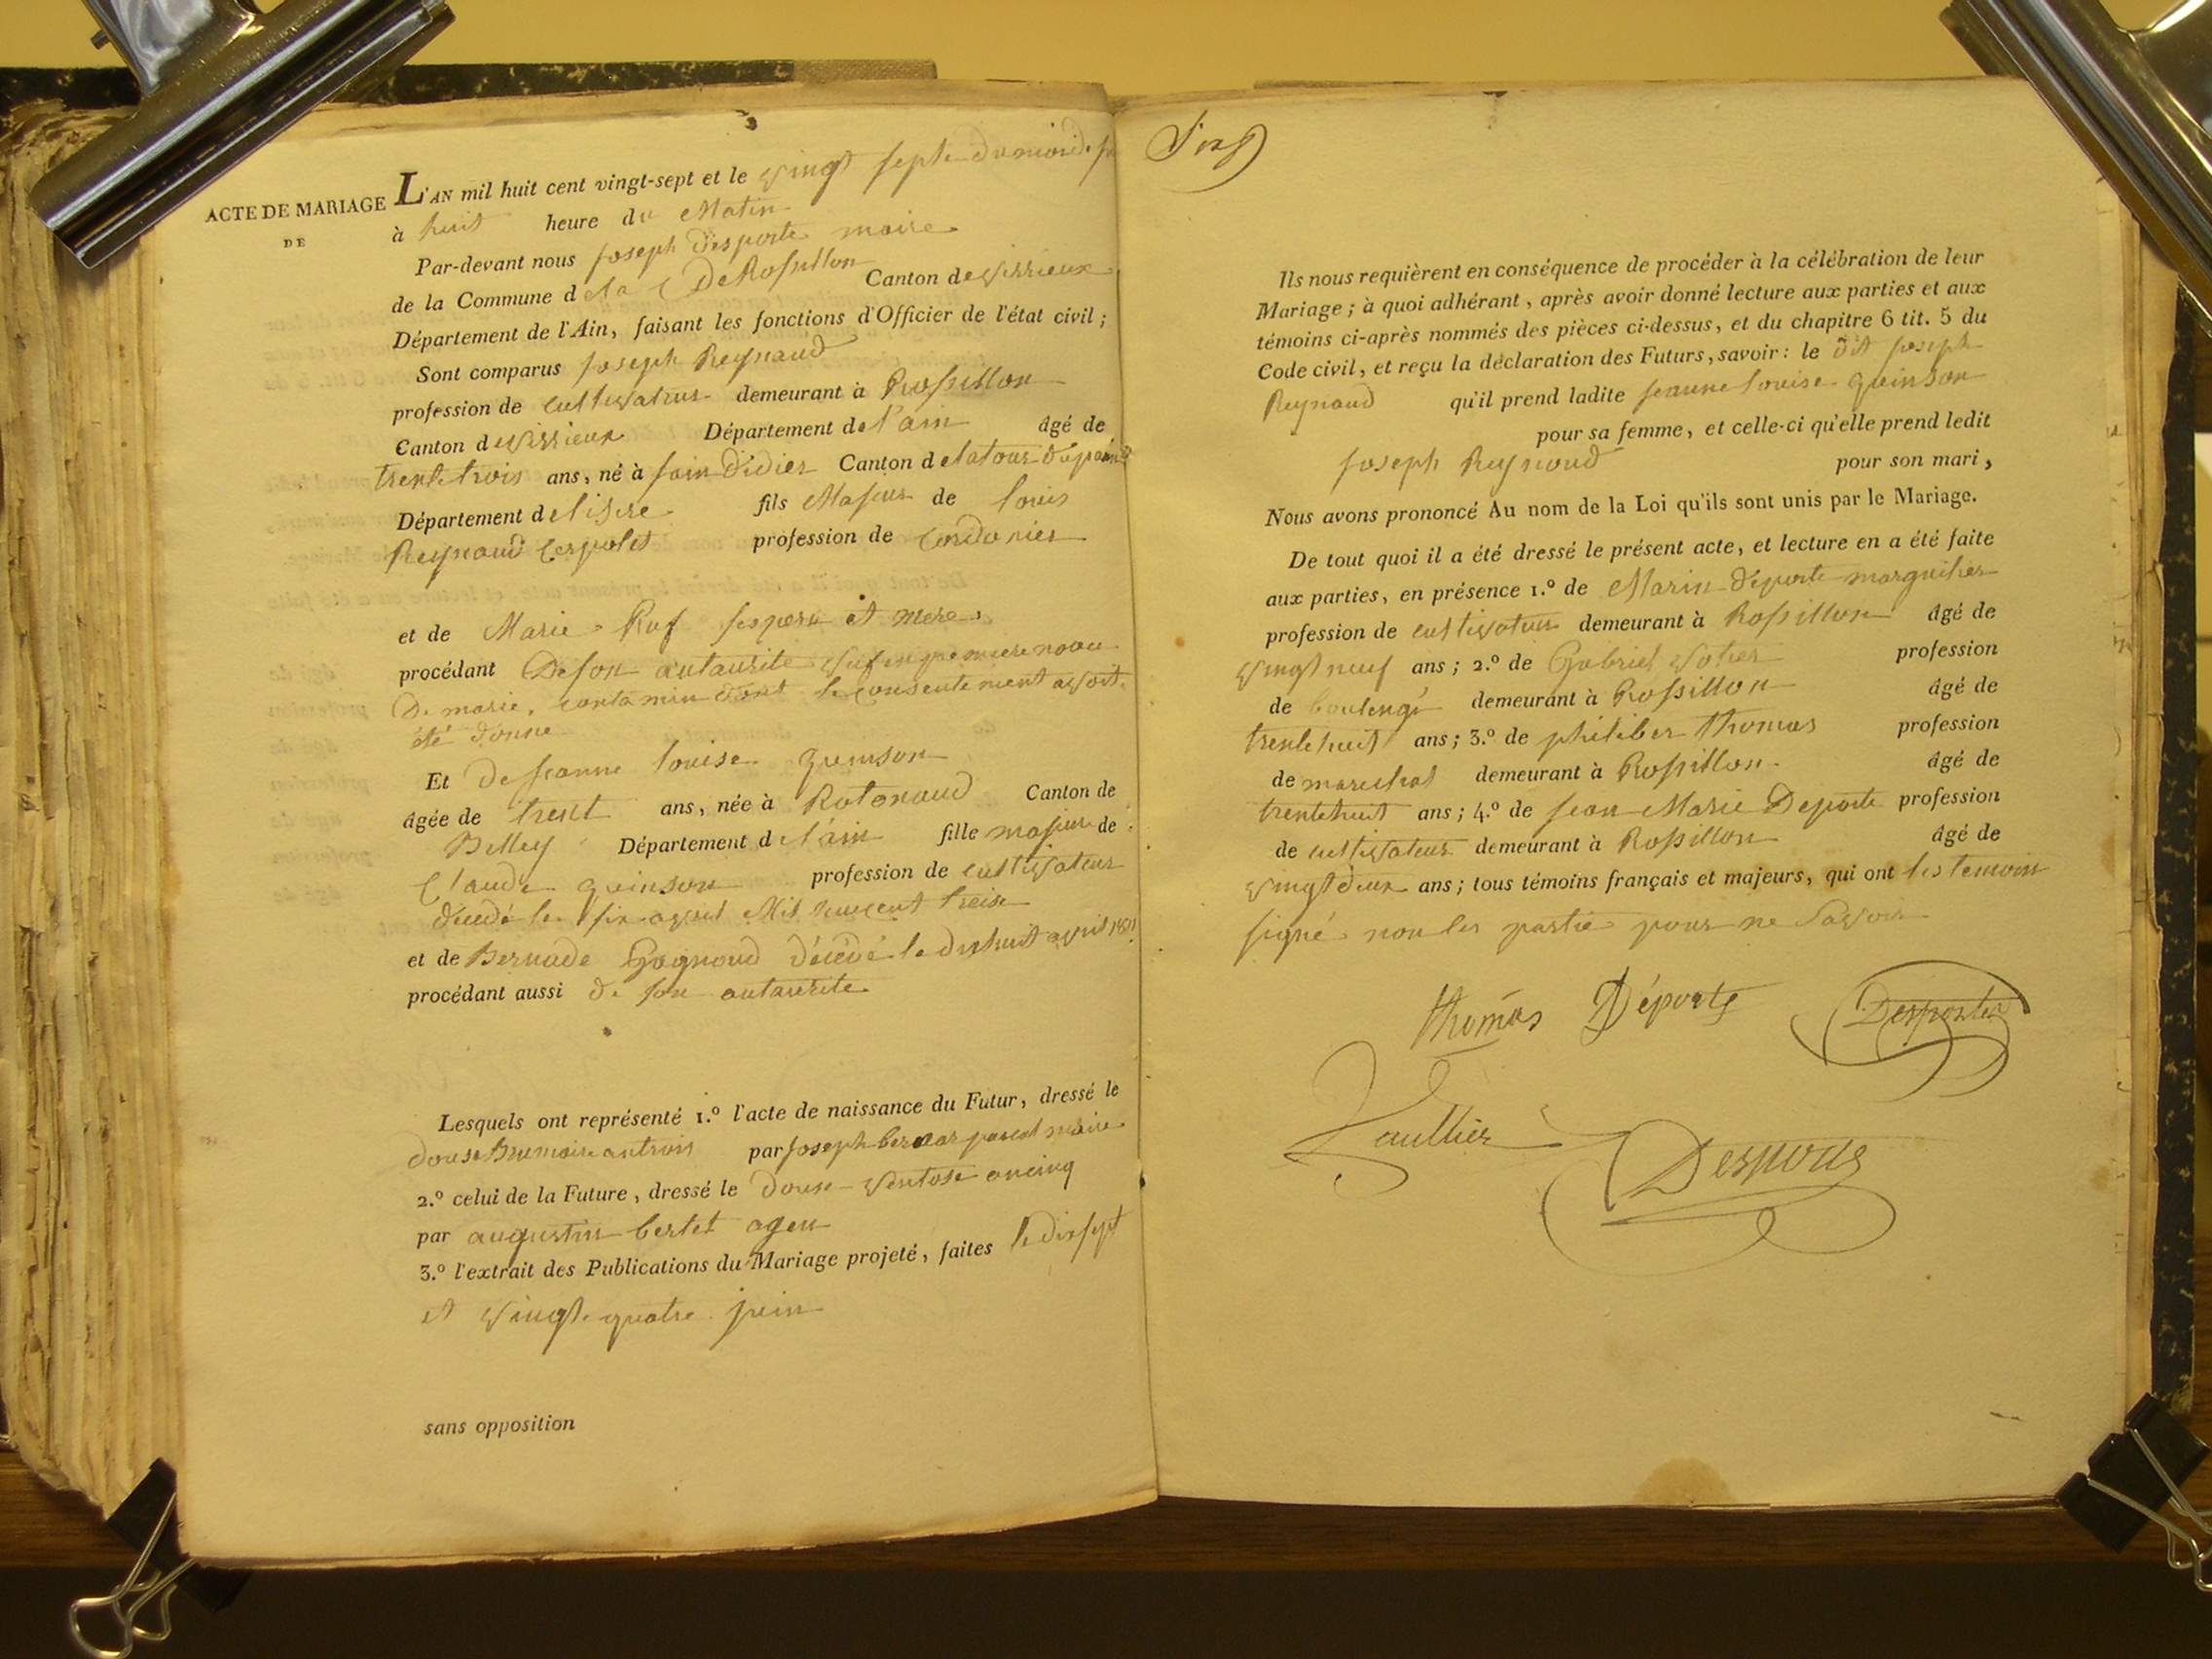 ACTE DE MARIAGE
DE
L'AN mil huit cent vingt-sept et le vingt sept du mois de
à huit heure du Matin
Par-devant nous joseph Desporte maire
de la Commune d De Rossillon Canton de virrieux
Département de l'Ain, faisant les fonctions d'Officier de l'état civil ;
Sont comparus joseph Reynaud
profession de cultivateur demeurant à Rossillon
Canton de virrieux Département de l'ain âgé de
trente trois ans, né à sain didier Canton de latour
Département de lisere fils Majeur de louis
Reynaud profession de Cordonier
et de Marie Ruf ses pere et mere
procédant De son autaurite
De marie, dont le consentement avoit
été donné
Et De jeanne louise quinson
âgée de trent ans, née à Rotonaud Canton de
Belley Département d l'ain fille majeur de
Claude quinson profession de cultivateur
décédé le six avril Mil huit cent treise
et de Bernade Gognoud décédé le dix huit avril
procédant aussi de son autaurite
Lesquels ont représenté 1.º l'acte de naissance du Futur, dressé le
Douse Brumaire an trois par joseph pascal maire
2.º celui de la Future, dressé le Douse ventose an cinq
par augustin bertet agen
3.º l'extrait des Publications du Mariage projeté, faites le dix sept
et vingt quatre juin
sans opposition
Ils nous requièrent en conséquence de procéder à la célébration de leur
Mariage ; à quoi adhérant, après avoir donné lecture aux parties et aux
témoins ci-après nommés des pièces ci-dessus, et du chapitre 6 tit. 5 du
Code civil, et reçu la déclaration des Futurs, savoir : le dit joseph
Reynaud qu'il prend ladite jeanne louise quinson
pour sa femme, et celle-ci qu'elle prend ledit
joseph Reynoud pour son mari,
Nous avons prononcé Au nom de la Loi qu'ils sont unis par le Mariage.
De tout quoi il a été dressé le présent acte, et lecture en a été faite
aux parties, en présence 1.º de Marin déporte marguilier
profession de cultivateur demeurant à Rossillon âgé de
vingt neuf ans ; 2.º de Gabriel profession
de boulengé demeurant à Rossillon âgé de
trente huit ans ; 3.º de philiber thomas profession
de marechal demeurant à Rossillon âgé de
trente huit ans ; 4.º de jean Marie Deporte profession
de cultivateur demeurant à Rossillon âgé de
vingt deux ans ; tous témoins français et majeurs, qui ont les temoin
signé non les partie pour ne savoir
thomas Déporte Desportes
Vaullier
Desporte